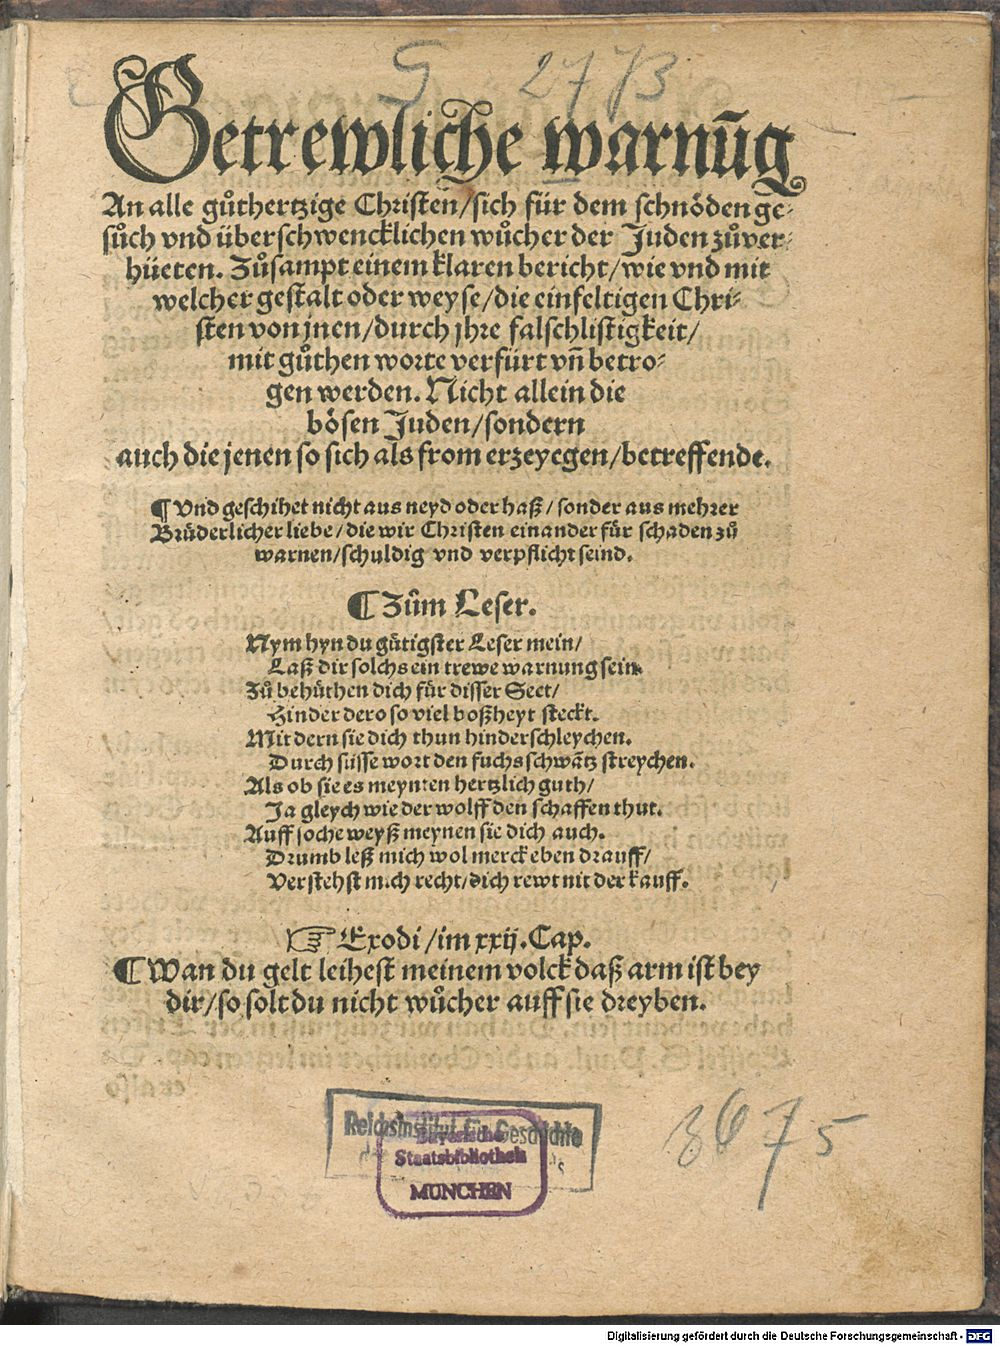 G 2773
Getrewliche warnūg
An alle gůthertzige Christen/sich für dem schnöden ge-
sůch vnd überschwencklichen wůcher der Juden zůver-
hüeten. Zůsampt einem klaren bericht/wie vnd mit
welcher gestalt oder weyse/die einfeltigen Chri-
sten von jnen/durch jhre falschlistigkeit/
mit gůthen worte verfürt vñ betro-
gen werden. Nicht allein die
bösen Juden/sondern
auch die jenen so sich als from erzeyegen/betreffende.
¶ Vnd geschihet nicht aus neyd oder haß/sonder aus mehrer
Brüderlicher liebe/die wir Christen einander für schaden zů
warnen/schuldig vnd verpflicht seind.
¶ Zům Leser.
Nym hyn du gütigster Leser mein/
Laß dir solchs ein trewe warnung sein.
Zů behüthen dich für disser Sect/
Hinder dero so viel boßheyt steckt.
Mit dern sie dich thun hinderschleychen.
Durch süsse wort den fuchsschwātz streychen.
Als ob sie es meynten hertzlich guth/
Ja gleych wie der wolff den schaffen thut.
Auff soche weyß meynen sie dich auch.
Drumb leß mich wol merck eben drauff/
Verstehst mich recht/dich rewt nit der kauff.
☞ Exodi/im xxij. Cap.
¶ Wan du gelt leihest meinem volck daß arm ist bey
dir/so solt du nicht wůcher auff sie dreyben.
Reichsinstitut für Geschichte
Bayerische
Staatsbibliothek
MÜNCHEN
3675
Digitalisierung gefördert durch die Deutsche Forschungsgemeinschaft - DFG